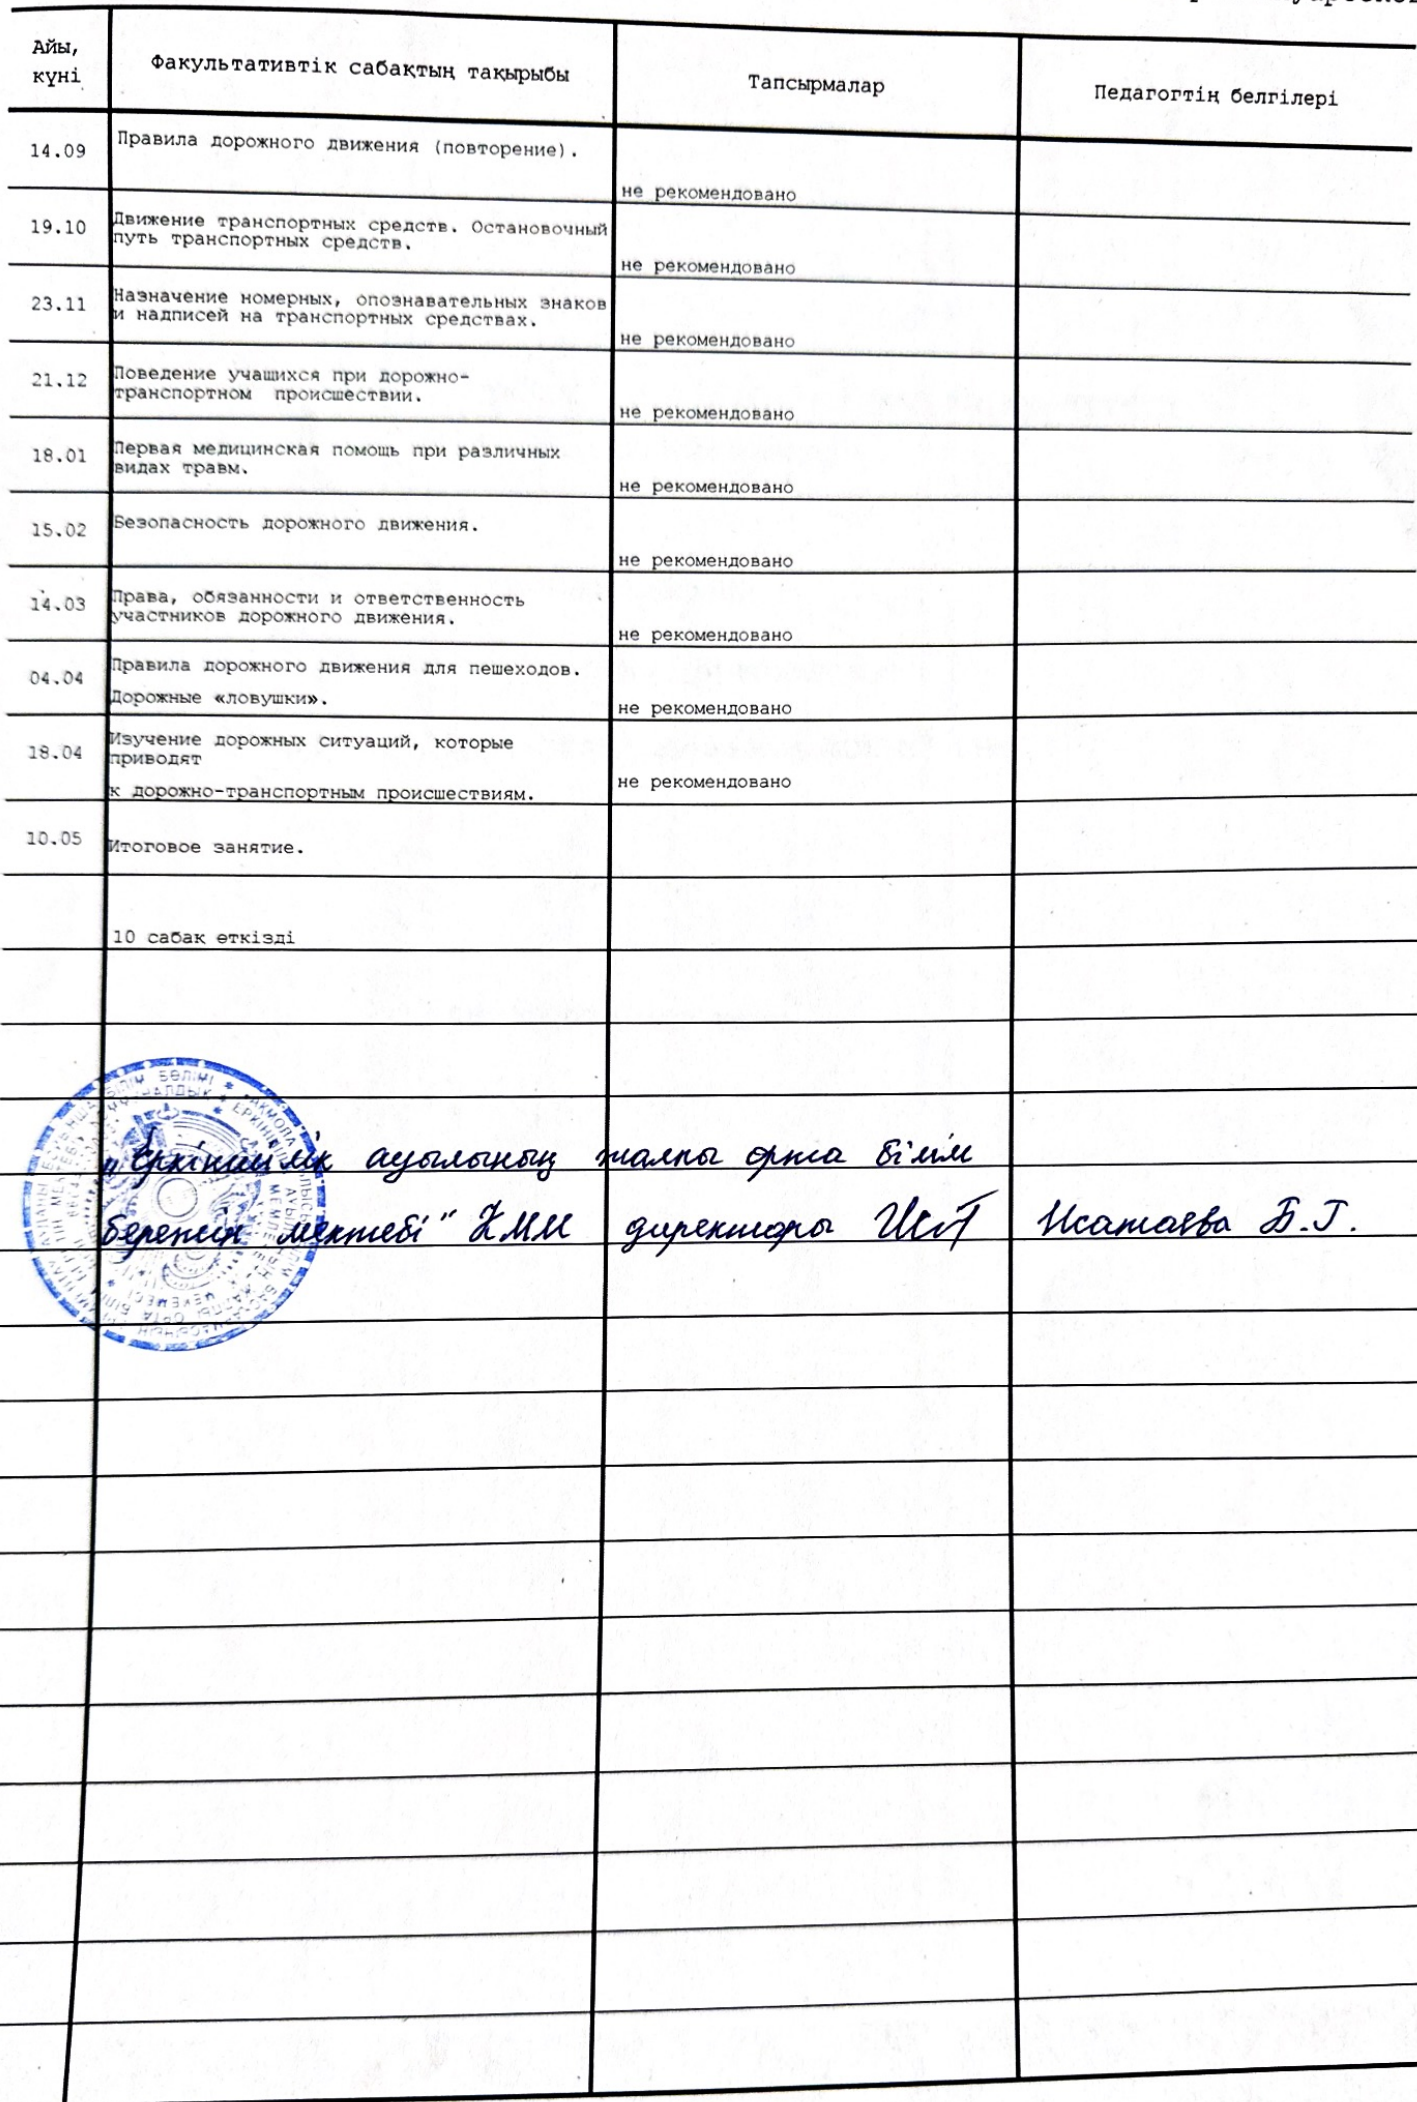 Айы,
күні
Факультативтік сабақтың тақырыбы
Тапсырмалар
Педагогтің белгілері
14.09
Правила дорожного движения (повторение).
не рекомендовано
19.10
Движение транспортных средств. Остановочный
путь транспортных средств.
не рекомендовано
23.11
Назначение номерных, опознавательных знаков
и надписей на транспортных средствах.
не рекомендовано
21.12
Поведение учащихся при дорожно-
транспортном происшествии.
не рекомендовано
18.01
Первая медицинская помощь при различных
видах травм.
не рекомендовано
15.02
Безопасность дорожного движения.
не рекомендовано
14.03
Права, обязанности и ответственность
участников дорожного движения.
не рекомендовано
04.04
Правила дорожного движения для пешеходов.
Дорожные «ловушки».
не рекомендовано
18.04
Изучение дорожных ситуаций, которые
приводят
к дорожно-транспортным происшествиям.
не рекомендовано
10.05
Итоговое занятие.
10 сабақ өткізді
„Еркіншілік ауылының жалпы орта білім
беретін мектебі" КММ директоры Исатаева Б.Г.